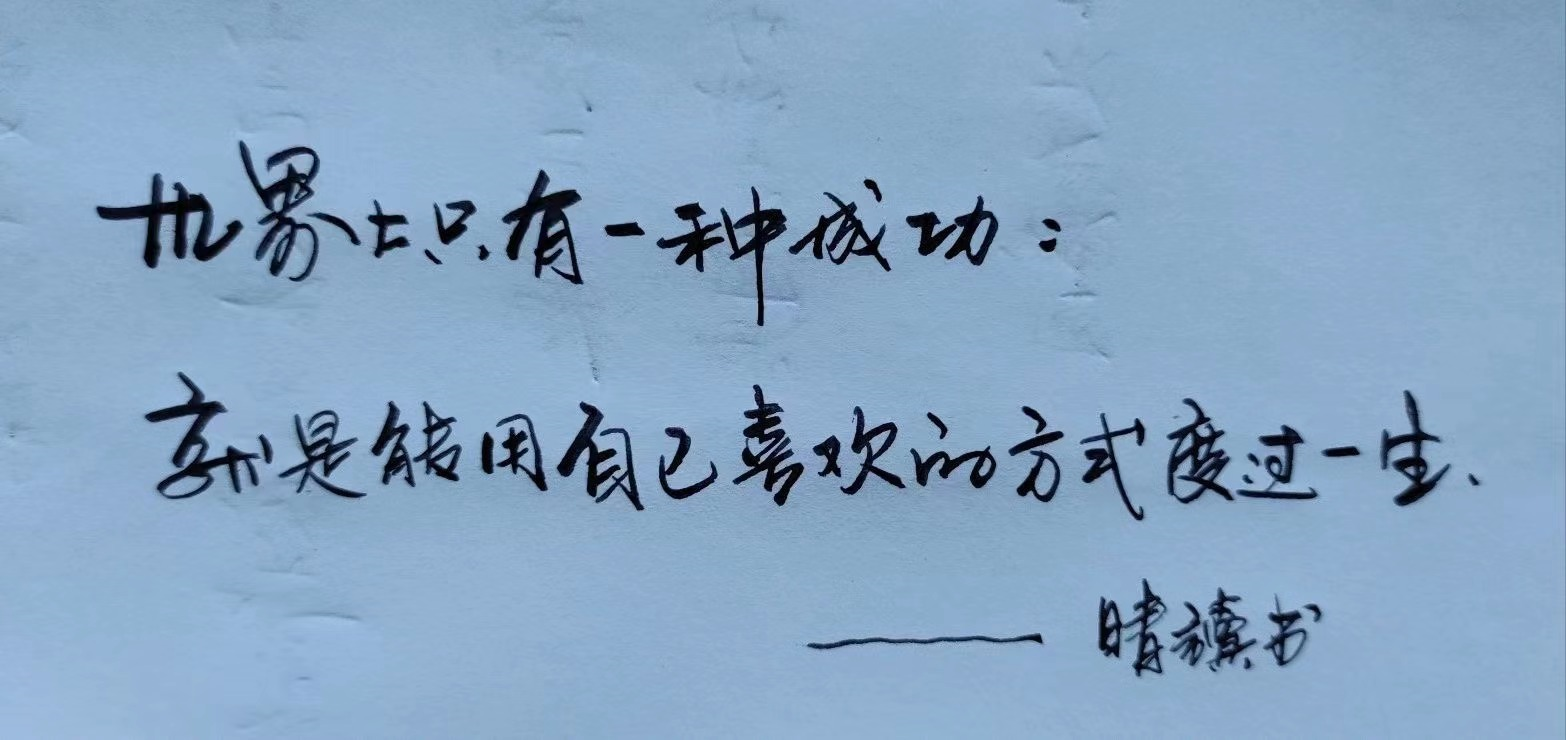 世界上只有一种成功：
就是能用自己喜欢的方式度过一生、
——晴读书